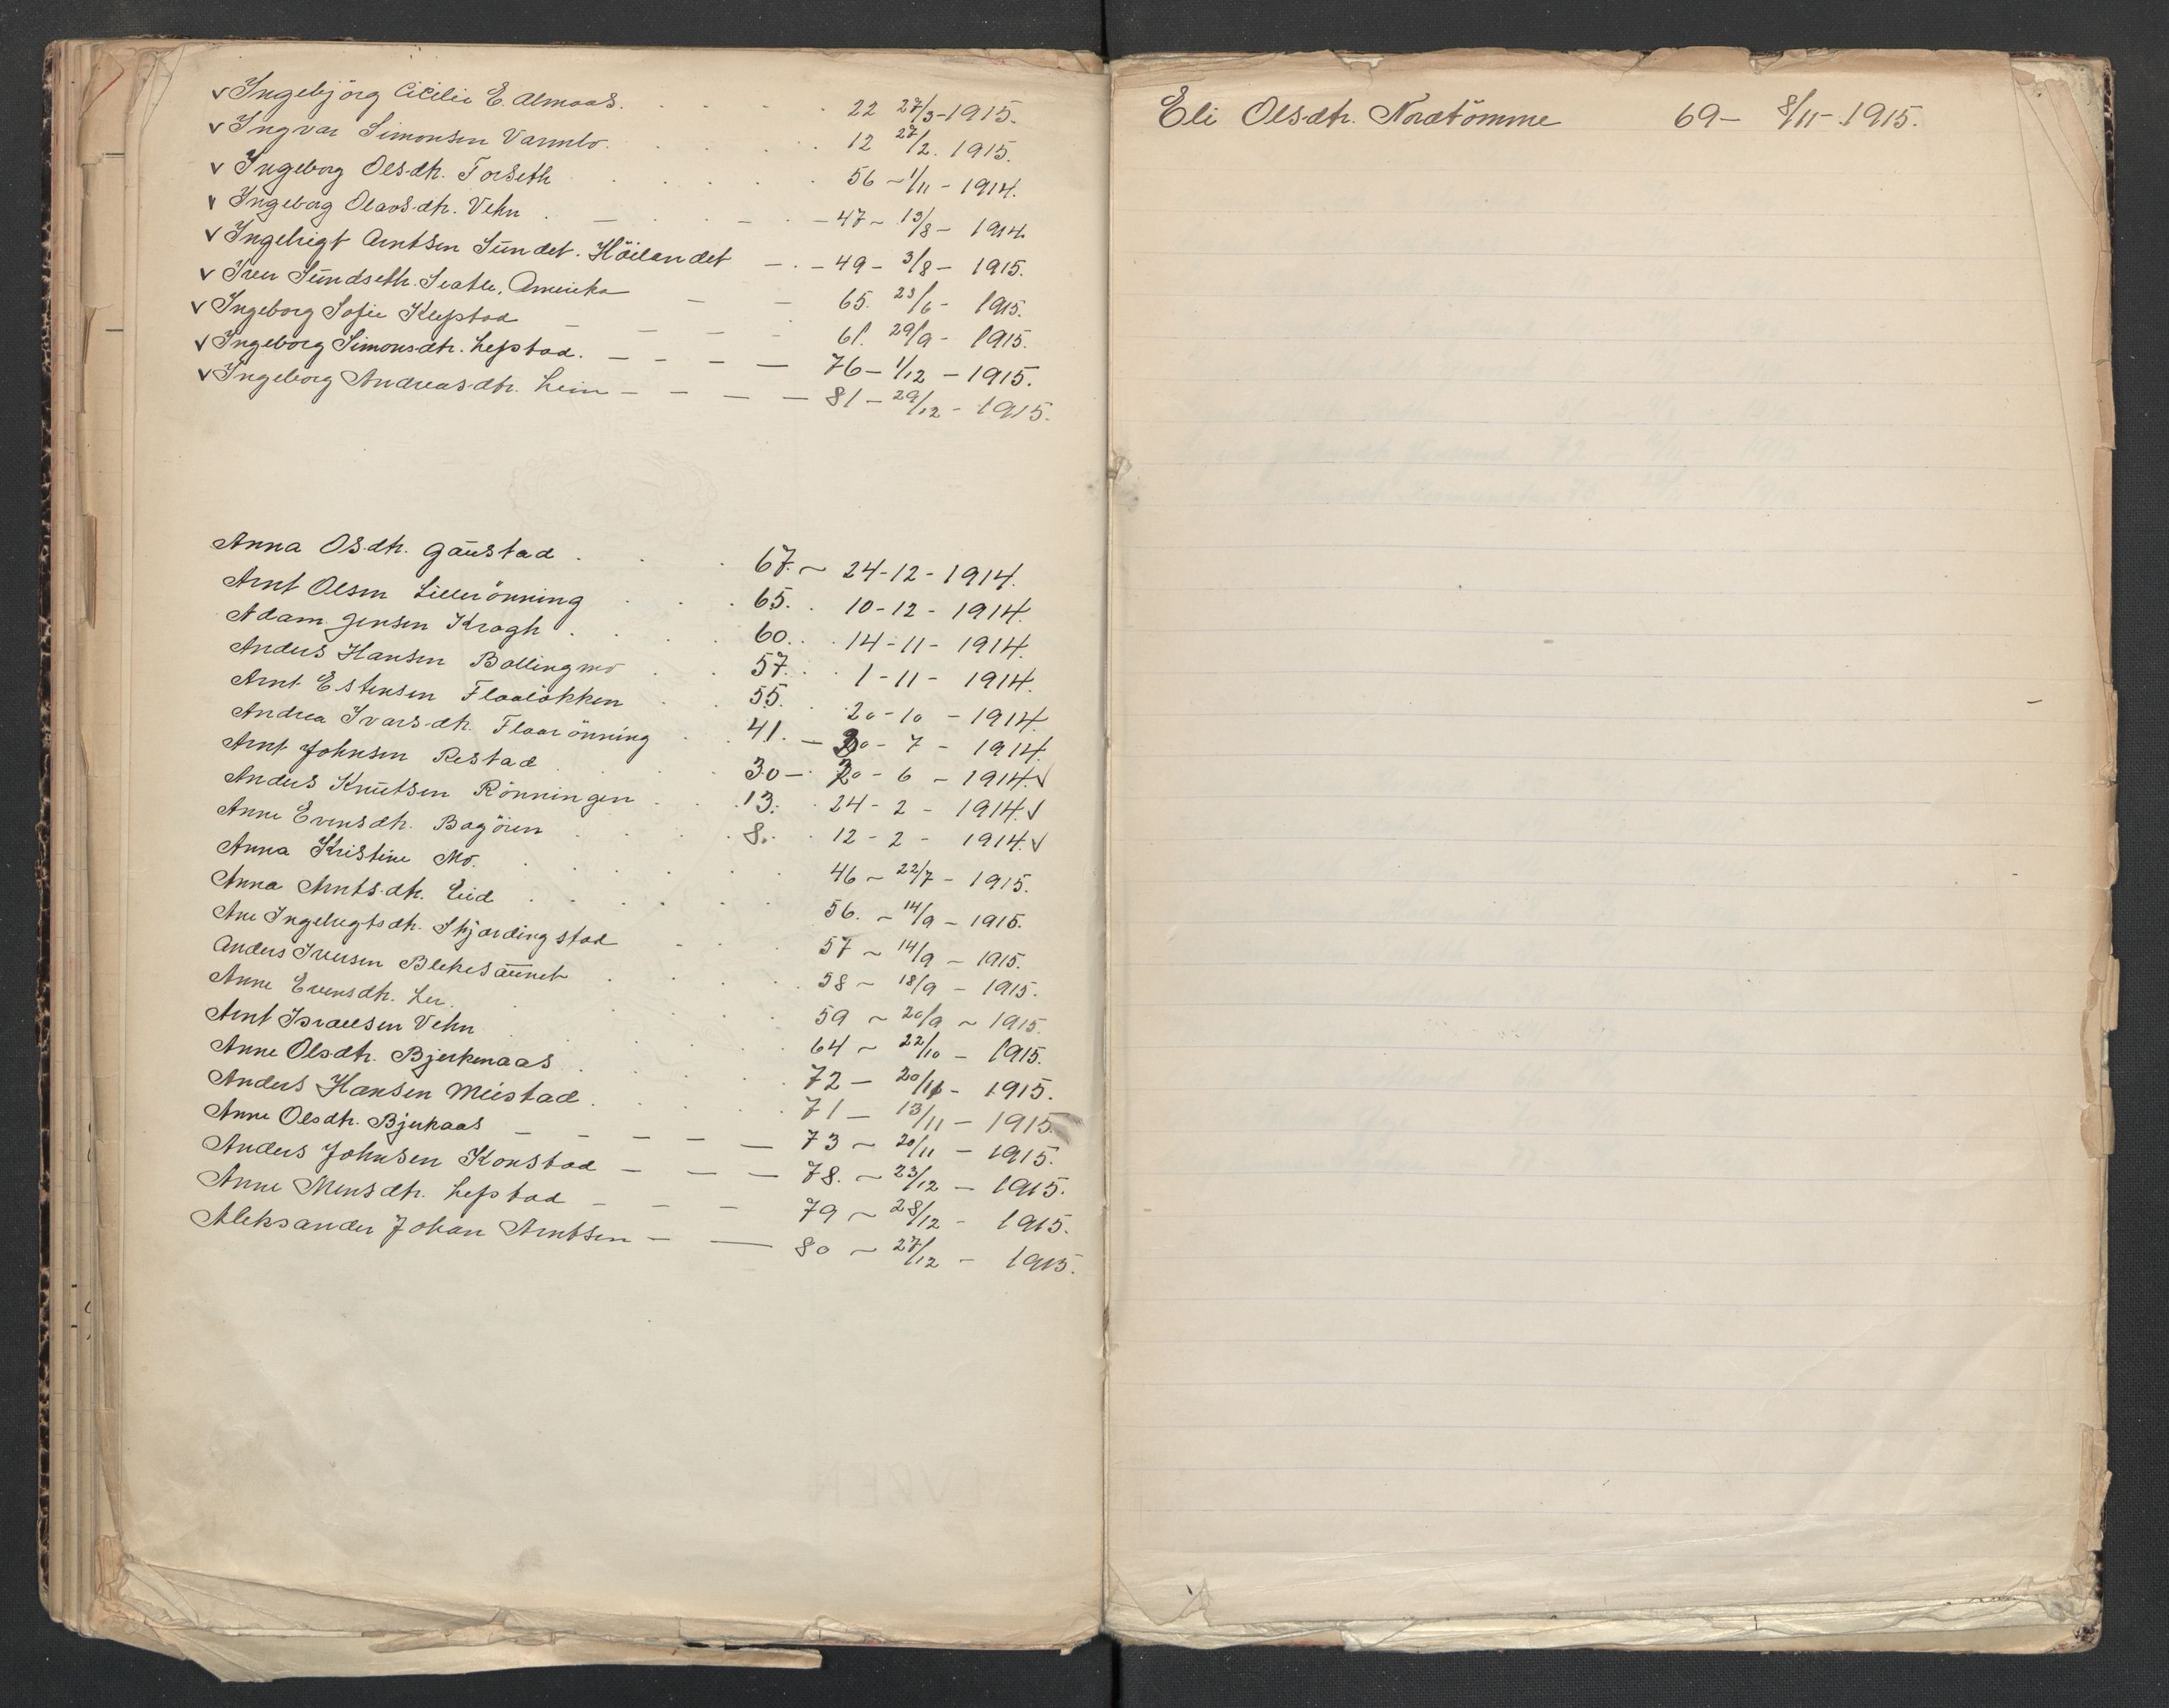 v Ingebjörg Cicilie E. Almaas. 22 27/3-1915.
v Ingvar Simonsen Varmbo. 12 27/2. 1915.
v Ingeborg Olsdtr. Forseth 56 - 1/11 - 1914.
v Ingeborg Olavsdtr. Vehn. - 47 - 13/8 - 1914.
v Ingebrigt Arntsen Sundet. Höilandet - 49 - 3/8 - 1915.
v Iver Sundseth. Seatle, Amerika - 65. 23/6 - 1915.
v Ingeborg Sofie Klefstad 61. 29/9 - 1915.
v Ingeborg Simonsdtr. Lefstad. - 76 - 1/12 - 1915.
v Ingeborg Andreasdtr. Leim - 81 - 29/12 - 1915.
Anna Osdtr. Gaustad. 67. - 24-12-1914.
Arnt Olsen Lillerönning 65. 10-12-1914.
Adam Jensen Krogh. 60. 14-11-1914.
Anders Hansen Bollingmo 57. 1-11-1914.
Arnt Estensen Flaaløkken 55. 20-10-1914.
Andrea Ivarsdtr. Flaarönning 41. - 30-7-1914.
Arnt Johnsen Restad 30 - 20-6-1914. v
Anders Knutsen Rönningen 13. 24-2-1914. v
Anne Evensdtr. Bagöien 8. 12-2-1914. v
Anna Kristine Mo. 46 - 22/7 - 1915.
Anna Arntsdtr. Eid 56. - 14/9 - 1915.
Ane Ingebrigtsdtr. Skjerdingstad 57 - 14/9 - 1915.
Anders Iversen Blekesaunet 58 - 18/9 - 1915.
Anne Evensdtr. Ler. 59 - 20/9 - 1915.
Arnt Israelsen Vehn 64 - 22/10 - 1915.
Anne Olsdtr. Bjerkenaas. 72 - 20/11 - 1915.
Anders Hansen Melstad. 71 - 13/11 - 1915.
Anne Olsdtr. Bjerkaas - 73 - 20/11 - 1915.
Anders Johnsen Konstad - 78. - 23/12 - 1915.
Anne Monsdtr. Lefstad - 79 - 28/12 - 1915.
Aleksander Johan Arntsen - 80 - 27/12 - 1915.
Eli Olsdtr. Nordtömme 69 - 8/11 - 1915.